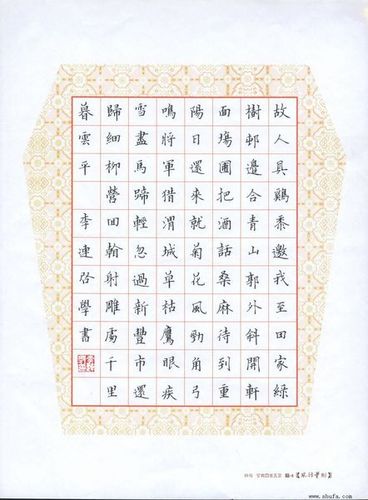 故人具鷄黍邀我至田家綠
樹邨邊合青山郭外斜開軒
面場圃把酒話桑麻待到重
陽日還來就菊花風勁角弓
鳴將軍猎渭城草枯鷹眼疾
雪盡馬蹄輕忽過新豐市還
歸細柳營回翰射雕處千里
暮雲平 李連學書
www.shufa.com